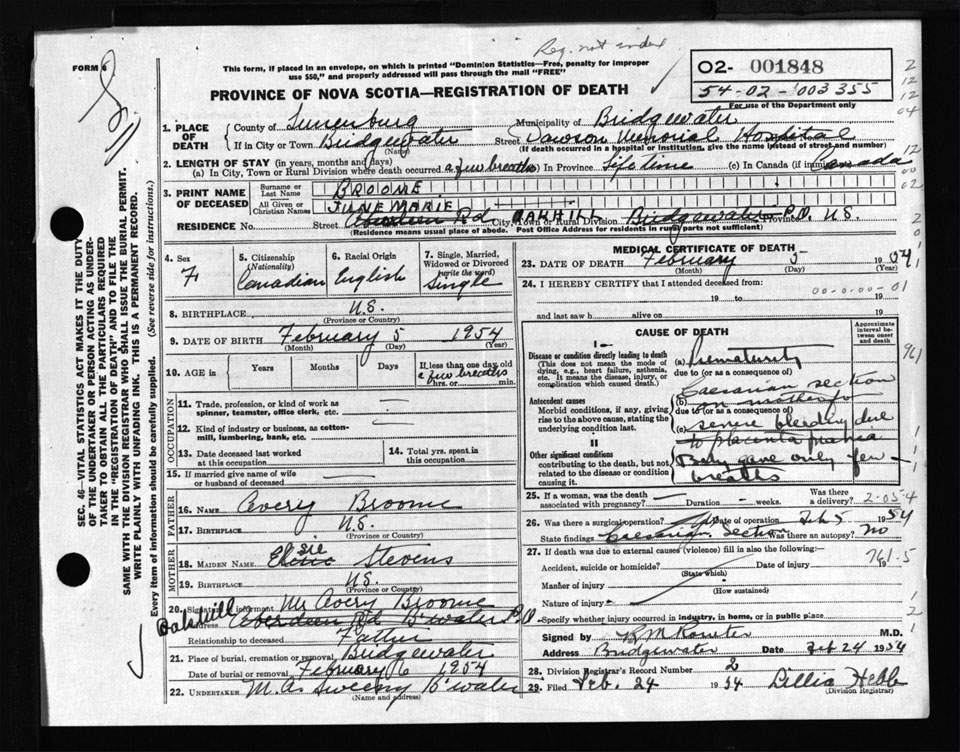 Reg. not index
FORM 6
This form, if placed in an envelope, on which is printed "Dominion Statistics—Free, penalty for improper
use $50," and properly addressed will pass through the mail "FREE"
02- 001848
54-02-003355
For use of the Department only
PROVINCE OF NOVA SCOTIA—REGISTRATION OF DEATH
1. PLACE OF DEATH
County of Lunenburg Municipality of Bridgewater
If in City or Town Bridgewater (Name) Street Dawson Memorial Hospital
(If death occurred in a hospital or institution, give the name instead of street and number)
2. LENGTH OF STAY (in years, months and days)
(a) In City, Town or Rural Division where death occurred a few breaths (b) In Province lifetime (c) In Canada (if immigrant) Canada
3. PRINT NAME OF DECEASED
Surname or Last Name BROOME
All Given or Christian Names JUNE MARIE
RESIDENCE No. Street Aberdeen Rd City, Town or Rural Division OAKHILL Bridgewater P.O. N.S.
(Residence means usual place of abode. Post Office Address for residents in rural parts not sufficient)
4. Sex F
5. Citizenship (Nationality) Canadian
6. Racial Origin English
7. Single, Married, Widowed or Divorced (write the word) Single
8. BIRTHPLACE N.S.
(Province or Country)
9. DATE OF BIRTH February 5 1954
(Month) (Day) (Year)
10. AGE in Years Months Days If less than one day old a few breaths
hrs. or min.
OCCUPATION
11. Trade, profession, or kind of work as spinner, teamster, office clerk, etc. —
12. Kind of industry or business, as cotton-mill, lumbering, bank, etc. —
13. Date deceased last worked at this occupation
14. Total yrs. spent in this occupation
15. If married give name of wife or husband of deceased —
FATHER
16. NAME Avery Broome
17. BIRTHPLACE N.S.
(Province or Country)
MOTHER
18. MAIDEN NAME Elsie Stevens
19. BIRTHPLACE N.S.
(Province or Country)
20. Signature of informant Mr Avery Broome
Address Oakhill Aberdeen Rd B'water P.O.
Relationship to deceased Father
21. Place of burial, cremation or removal Bridgewater
Date of burial or removal February 6 1954
22. UNDERTAKER M.A. Sweeny B'water
(Name and address)
MEDICAL CERTIFICATE OF DEATH
23. DATE OF DEATH February 5 1954
(Month) (Day) (Year)
24. I HEREBY CERTIFY that I attended deceased from:
19 to 19
00-0-00-01
and last saw h alive on 19
CAUSE OF DEATH
Approximate interval between onset and death
I
Disease or condition directly leading to death
(This does not mean the mode of dying, e.g., heart failure, asthenia, etc. It means the disease, injury, or complication which caused death.)
(a) Prematurity
due to (or as a consequence of)
Antecedent causes
Morbid conditions, if any, giving rise to the above cause, stating the underlying condition last.
(b) Caesarian section on mother for
due to (or as a consequence of)
(c) severe bleeding due to placenta previa
II
Other significant conditions
contributing to the death, but not related to the disease or condition causing it.
Baby gave only few breaths
25. If a woman, was the death associated with pregnancy? — Duration — weeks. Was there a delivery?
2-05-4
26. Was there a surgical operation? Date of operation Feb 5 1954
State findings Caesarian Section Was there an autopsy? No
27. If death was due to external causes (violence) fill in also the following:-
Accident, suicide or homicide? Date of injury 19
(State which)
761-5
Manner of injury
(How sustained)
Nature of injury
Specify whether injury occurred in industry, in home, or in public place
Signed by M.D.
Address Bridgewater Date Feb 24 1954
28. Division Registrar's Record Number 2
29. Filed Feb. 24 1954 Lillia Hebb
(Division Registrar)
SEC. 46—VITAL STATISTICS ACT MAKES IT THE DUTY
OF THE UNDERTAKER OR PERSON ACTING AS UNDER-
TAKER TO OBTAIN ALL THE PARTICULARS REQUIRED
IN THE "REGISTRATION OF DEATH" AND TO FILE THE
SAME WITH THE DIVISION REGISTRAR WHO SHALL ISSUE THE BURIAL PERMIT.
WRITE PLAINLY WITH UNFADING INK. THIS IS A PERMANENT RECORD.
Every item of information should be carefully supplied. (See reverse side for instructions.)